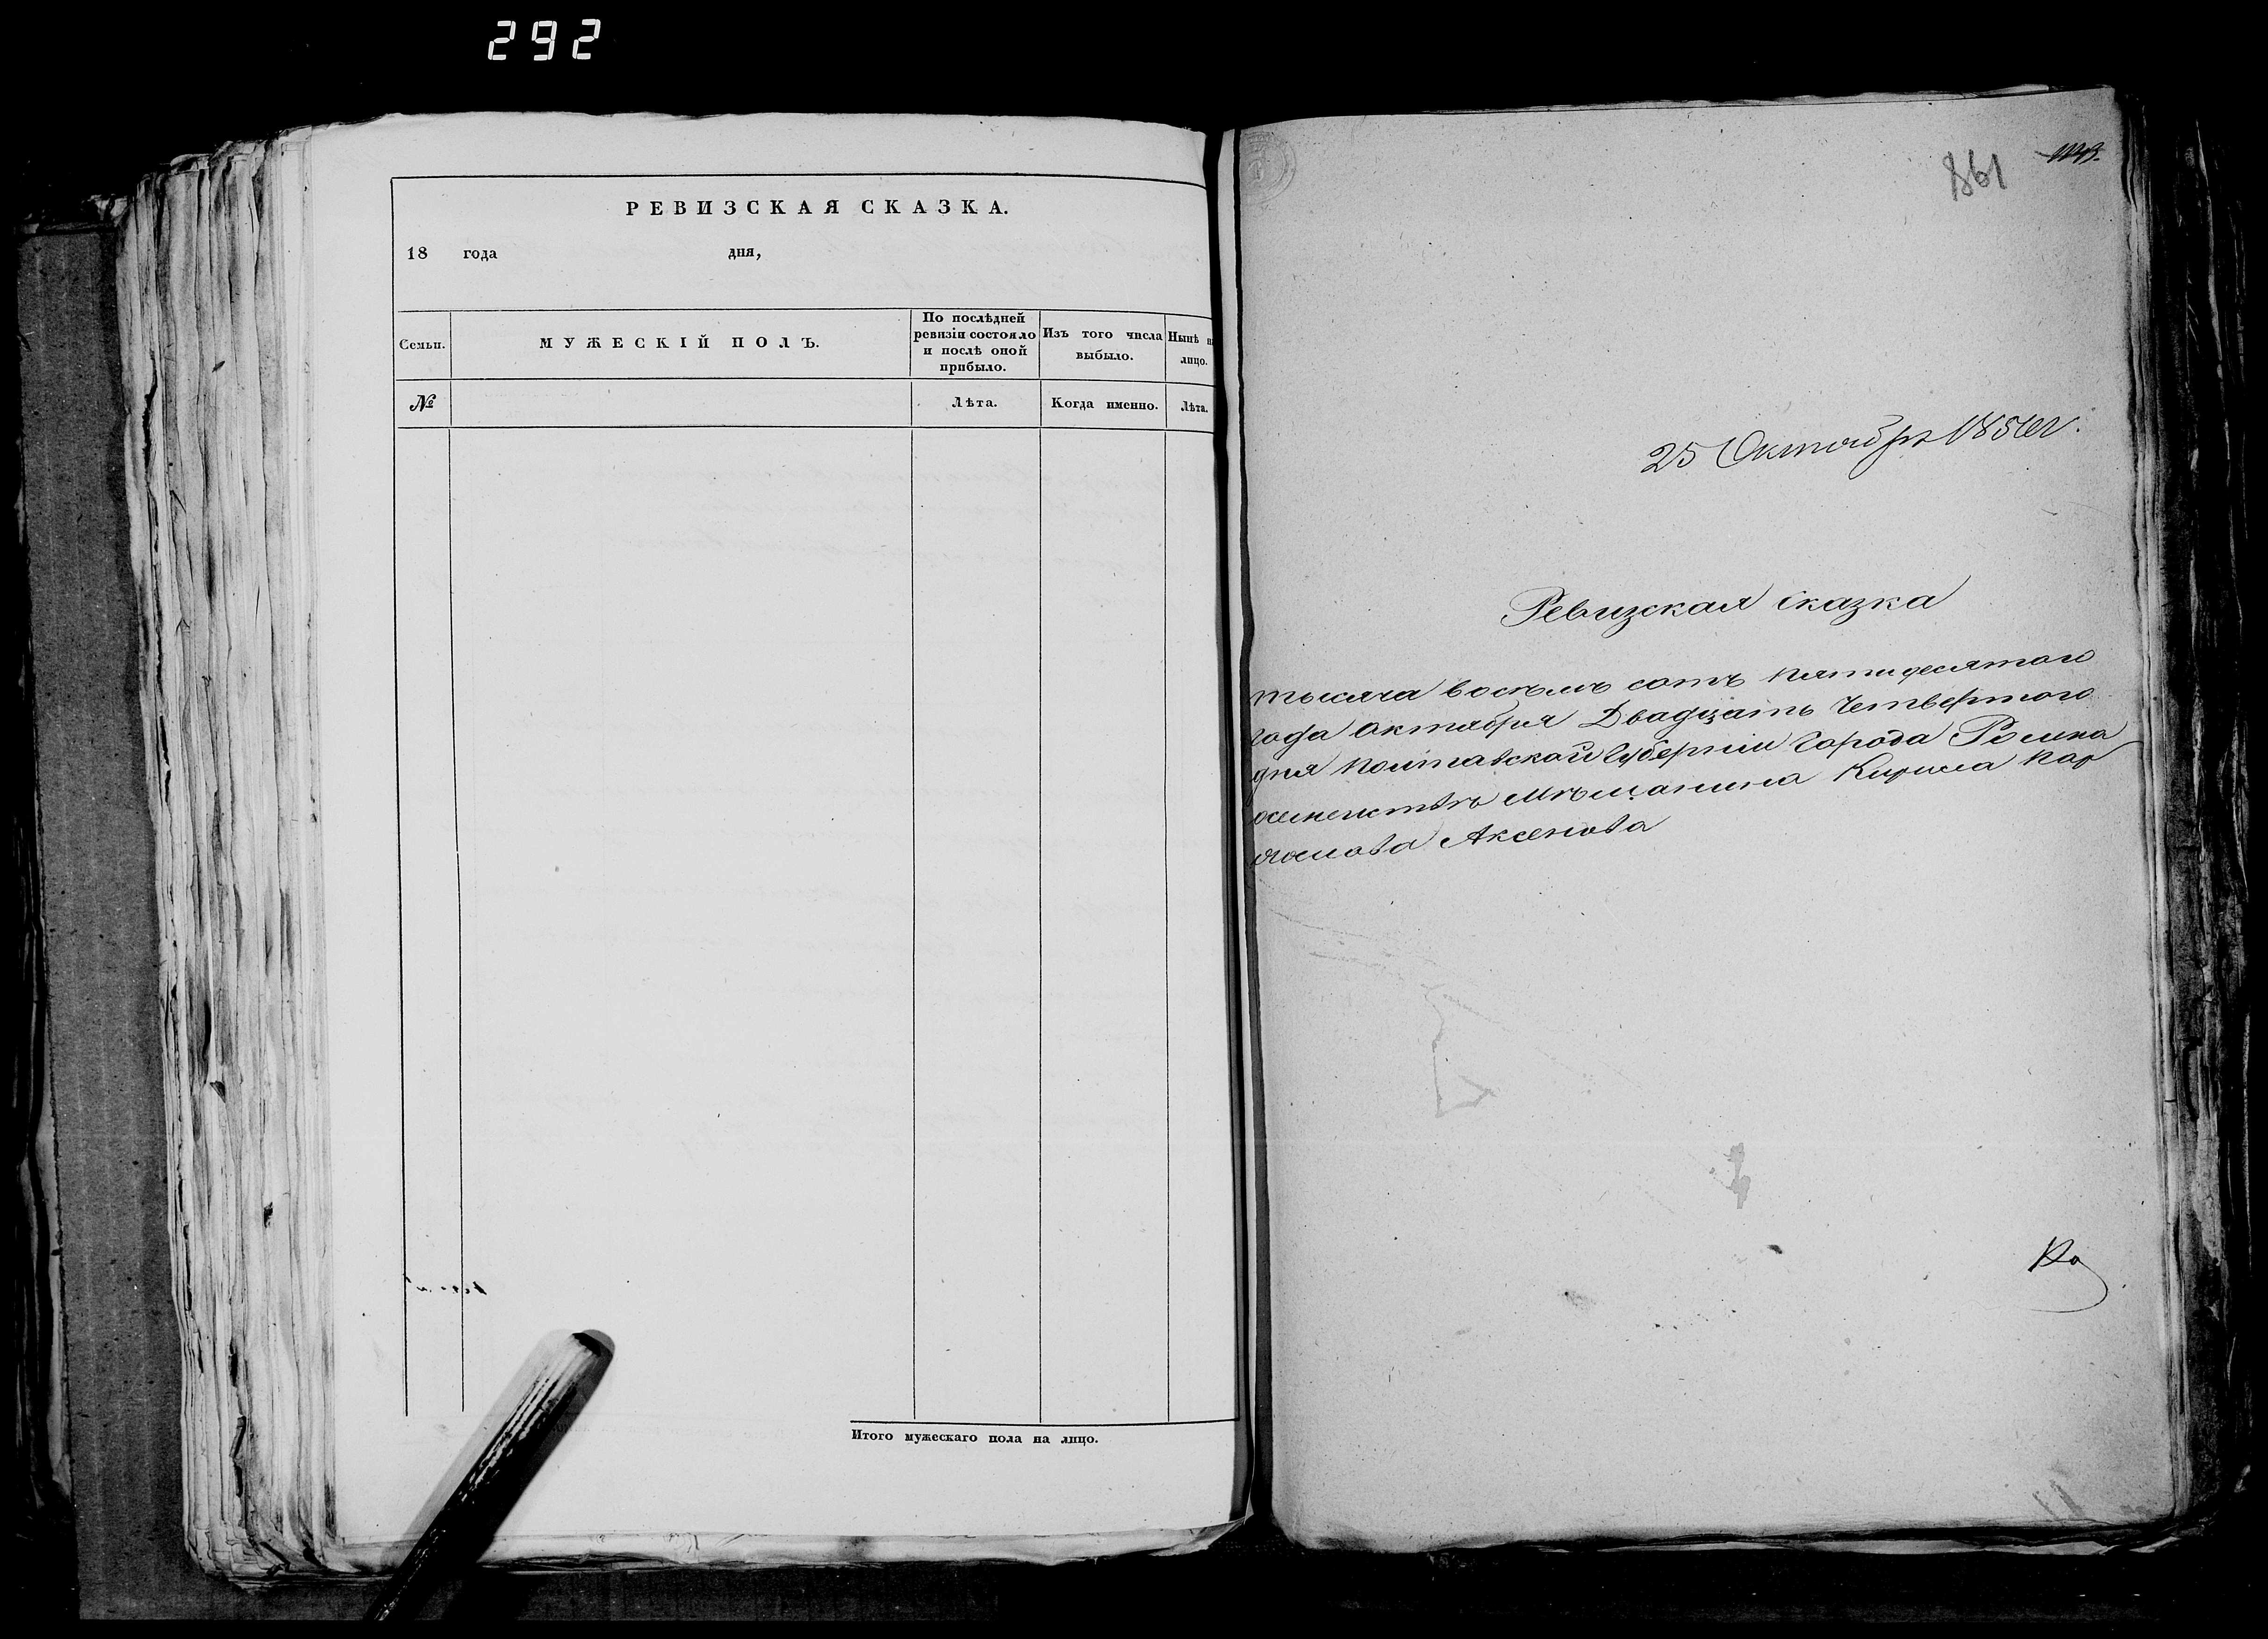 292
РЕВИЗСКАЯ СКАЗКА.
18 года дня,
Семьи.
МУЖЕСКІЙ ПОЛЪ.
По послѣдней
ревизіи состояло
и послѣ оной
прибыло.
Изъ того числа
выбыло.
Нынѣ на
лицо.
№
Лѣта.
Когда именно.
Лѣта.
Итого мужескаго пола на лицо.
861
25 Октобря 1850 г.
Ревизская сказка
тысяча восемь сотъ пятидесятого
года октября Двадцать Четвертого
дня Полтавской Губерніи Города Ромна
Мѣщанина Кирила
Аксенова
Ко